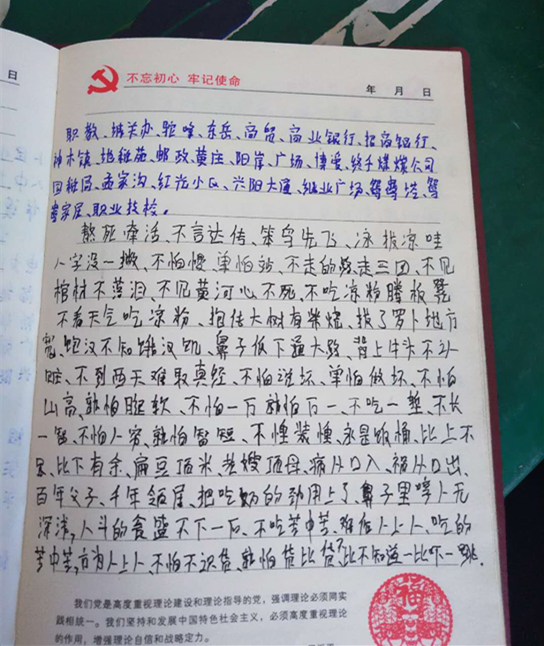 日
不忘初心 牢记使命
年 月 日
职教、城关办、驼峰、东岳、商贸、商业银行、招商银行、
神木镇、地税苑、邮政、黄庄、阳岸、广场、博爱、铁手煤炭公司
国税局、孟家沟、红光小区、兴阳大道、继业广场、
家屋、职业技校。
熬死牵活、不言达传、笨鸟先飞、凉 凉哇
人字没一撇、不怕慢、单怕站、不走的 走三回、不见
棺材不落泪、不见黄河心不死、不吃凉粉腾板凳
不看天气吃凉粉、抱住大树有柴烧、拔了罗卜地方
宽、饱汉不知饿汉饥、鼻子底下通大路、背上牛头不认
脏、不到西天难取真经、不怕说坏、单怕做坏、不怕
山高、就怕腿软、不怕一万就怕万一、不吃一堑、不长
一智、不怕人穷、就怕智短、不懂装懂、永是饭桶、比上不
足、比下有余、扁豆顶米、老嫂顶母、病从口入、祸从口出、
百年父子、千年邻居、把吃奶的劲用上了 鼻子里嗅人无
深浅,人斗的食盛不下一石、不吃苦中苦、难作人上人、吃的
苦中苦,方为人上人 不怕不识货、就怕货比货,比不知道一比吓一跳.
我们党是高度重视理论建设和理论指导的党,强调理论必须同实
践相统一。我们坚持和发展中国特色社会主义,必须高度重视理论
的作用,增强理论自信和战略定力。
福